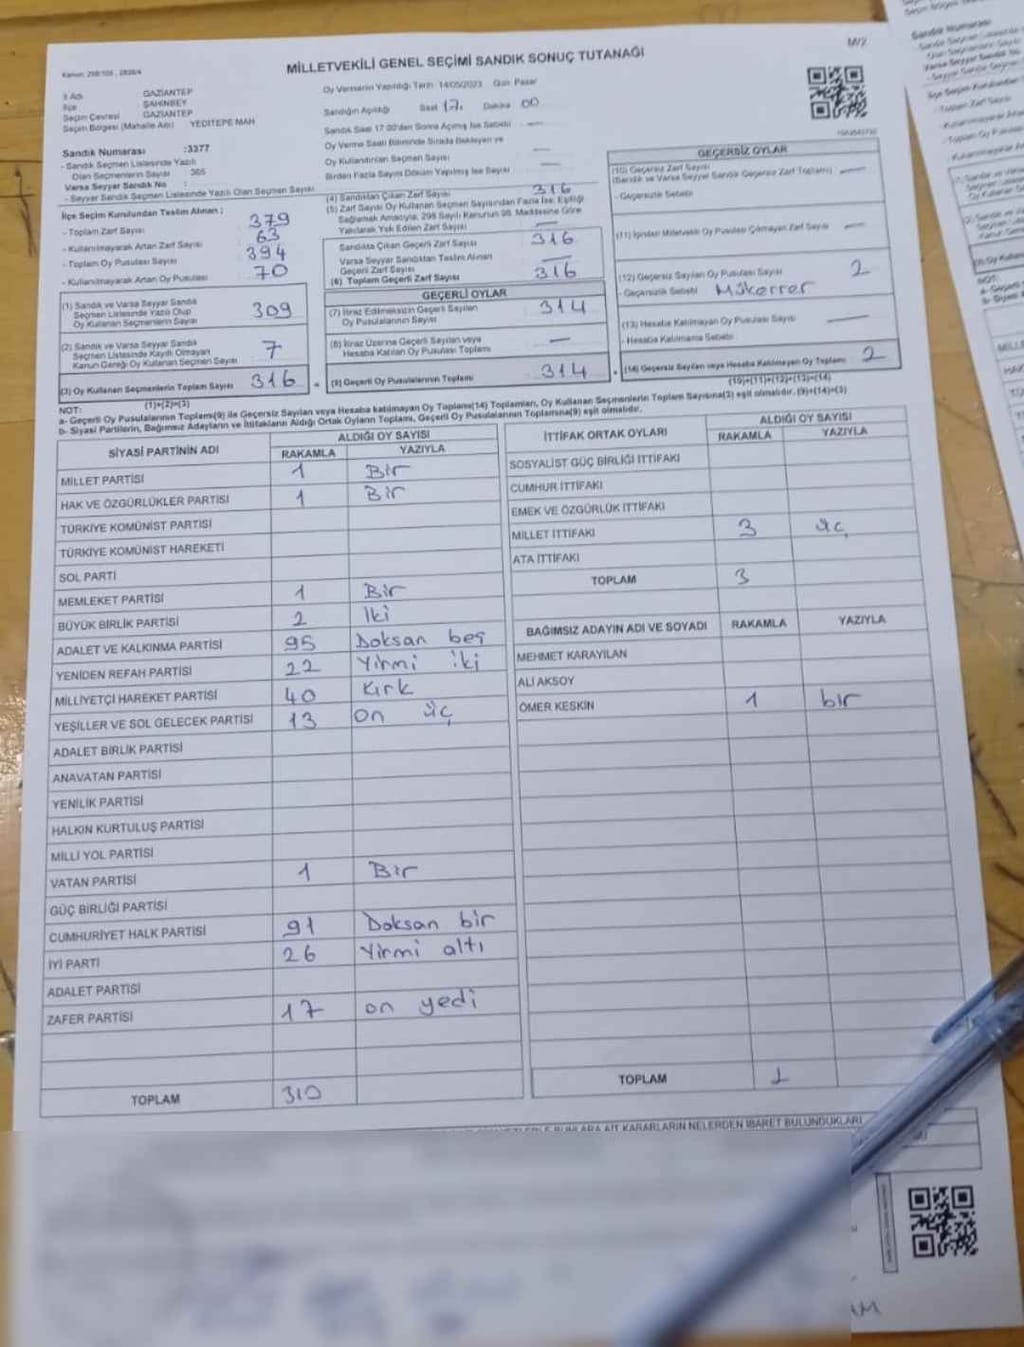 MİLLETVEKİLİ GENEL SEÇİMİ SANDIK SONUÇ TUTANAĞI
M/2
İlçe GAZİANTEP
ŞAHİNBEY
Seçim Çevresi GAZİANTEP
Seçim Bölgesi (Mahalle Adı) YEDİTEPE MAH
Oy Vermenin Yapıldığı Tarih 14/05/2023 Gün Pazar
Sandığın Açıldığı Saat 17. Dakika 00
Sandık Saat 17.00'den Sonra Açılmış İse Sebebi —
Oy Verme Saati Bitiminde Sırada Bekleyen ve
Oy Kullandırılan Seçmen Sayısı —
Birden Fazla Sayım Döküm Yapılmış İse Sayısı —
Sandık Numarası :3377
- Sandık Seçmen Listesinde Yazılı
Olan Seçmenlerin Sayısı
Varsa Seyyar Sandık No :
- Seyyar Sandık Seçmen Listesinde Yazılı Olan Seçmen Sayısı
İlçe Seçim Kurulundan Teslim Alınan ;
- Toplam Zarf Sayısı 379
- Kullanılmayarak Artan Zarf Sayısı 63
- Toplam Oy Pusulası Sayısı 394
- Kullanılmayarak Artan Oy Pusulası 70
(1) Sandık ve Varsa Seyyar Sandık
Seçmen Listesinde Yazılı Olup
Oy Kullanan Seçmenlerin Sayısı 309
(2) Sandık ve Varsa Seyyar Sandık
Seçmen Listesinde Kayıtlı Olmayan
Kanun Gereği Oy Kullanan Seçmen Sayısı 7
(3) Oy Kullanan Seçmenlerin Toplam Sayısı 316
(1)+(2)=(3)
(4) Sandıktan Çıkan Zarf Sayısı 316
(5) Zarf Sayısı Oy Kullanan Seçmen Sayısından Fazla İse, Eşitliği
Sağlamak Amacıyla, 298 Sayılı Kanunun 98. Maddesine Göre
Yakılarak Yok Edilen Zarf Sayısı —
Sandıkta Çıkan Geçerli Zarf Sayısı 316
Varsa Seyyar Sandıktan Teslim Alınan
Geçerli Zarf Sayısı —
(6) Toplam Geçerli Zarf Sayısı 316
GEÇERLİ OYLAR
(7) İtiraz Edilmeksizin Geçerli Sayılan
Oy Pusulalarının Sayısı 314
(8) İtiraz Üzerine Geçerli Sayılan veya
Hesaba Katılan Oy Pusulası Toplamı —
(9) Geçerli Oy Pusulalarının Toplamı 314
GEÇERSİZ OYLAR
(10) Geçersiz Zarf Sayısı
(Sandık ve Varsa Seyyar Sandık Geçersiz Zarf Toplamı) —
- Geçersizlik Sebebi
(11) İçinden Milletvekili Oy Pusulası Çıkmayan Zarf Sayısı —
(12) Geçersiz Sayılan Oy Pusulası Sayısı 2
- Geçersizlik Sebebi Mükerrer
(13) Hesaba Katılmayan Oy Pusulası Sayısı —
- Hesaba Katılmama Sebebi
(14) Geçersiz Sayılan veya Hesaba Katılmayan Oy Toplamı 2
(10)+(11)+(12)+(13)=(14)
NOT:
a- Geçerli Oy Pusulaları Toplamı(9) ile Geçersiz Sayılan veya Hesaba katılmayan Oy Toplamı(14) Toplamları, Oy Kullanan Seçmenlerin Toplam Sayısına(3) eşit olmalıdır. (9)+(14)=(3)
b- Siyasi Partilerin, Bağımsız Adayların ve İttifakların Aldığı Ortak Oyların Toplamı, Geçerli Oy Pusulalarının Toplamına(9) eşit olmalıdır.
SİYASİ PARTİNİN ADI ALDIĞI OY SAYISI
RAKAMLA YAZIYLA
MİLLET PARTİSİ 1 Bir
HAK VE ÖZGÜRLÜKLER PARTİSİ 1 Bir
TÜRKİYE KOMÜNİST PARTİSİ
TÜRKİYE KOMÜNİST HAREKETİ
SOL PARTİ
MEMLEKET PARTİSİ 1 Bir
BÜYÜK BİRLİK PARTİSİ 2 İki
ADALET VE KALKINMA PARTİSİ 95 Doksan beş
YENİDEN REFAH PARTİSİ 22 Yirmi iki
MİLLİYETÇİ HAREKET PARTİSİ 40 Kırk
YEŞİLLER VE SOL GELECEK PARTİSİ 13 on üç
ADALET BİRLİK PARTİSİ
ANAVATAN PARTİSİ
YENİLİK PARTİSİ
HALKIN KURTULUŞ PARTİSİ
MİLLİ YOL PARTİSİ
VATAN PARTİSİ 1 Bir
GÜÇ BİRLİĞİ PARTİSİ
CUMHURİYET HALK PARTİSİ 91 Doksan bir
İYİ PARTİ 26 Yirmi altı
ADALET PARTİSİ
ZAFER PARTİSİ 17 on yedi
TOPLAM 310
İTTİFAK ORTAK OYLARI ALDIĞI OY SAYISI
RAKAMLA YAZIYLA
SOSYALİST GÜÇ BİRLİĞİ İTTİFAKI
CUMHUR İTTİFAKI
EMEK VE ÖZGÜRLÜK İTTİFAKI
MİLLET İTTİFAKI 3 üç
ATA İTTİFAKI
TOPLAM 3
BAĞIMSIZ ADAYIN ADI VE SOYADI RAKAMLA YAZIYLA
MEHMET KARAYILAN
ALİ AKSOY
ÖMER KESKİN 1 bir
TOPLAM 1
KARARLARIN NELERDEN İBARET BULUNDUKLARI